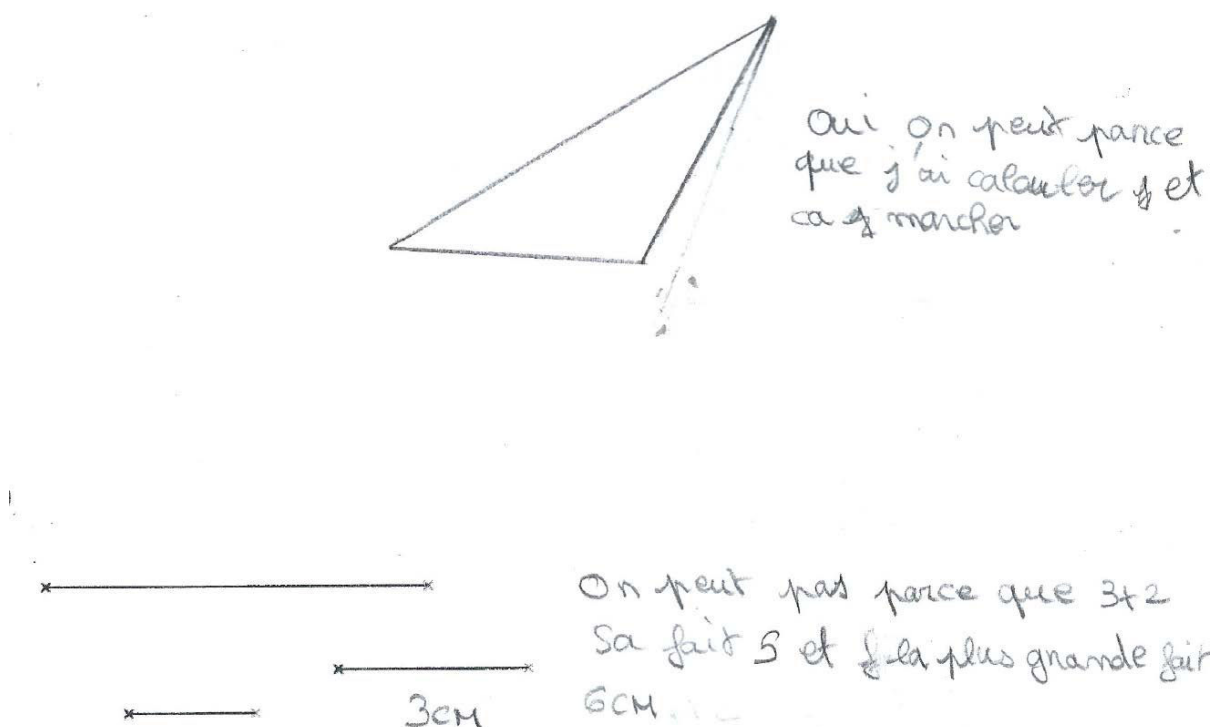 Oui on peut parce
que j'ai calculer et
ca marcher
On peut pas parce que 3+2
Sa fait 5 et la plus grande fait
3cm
6cm